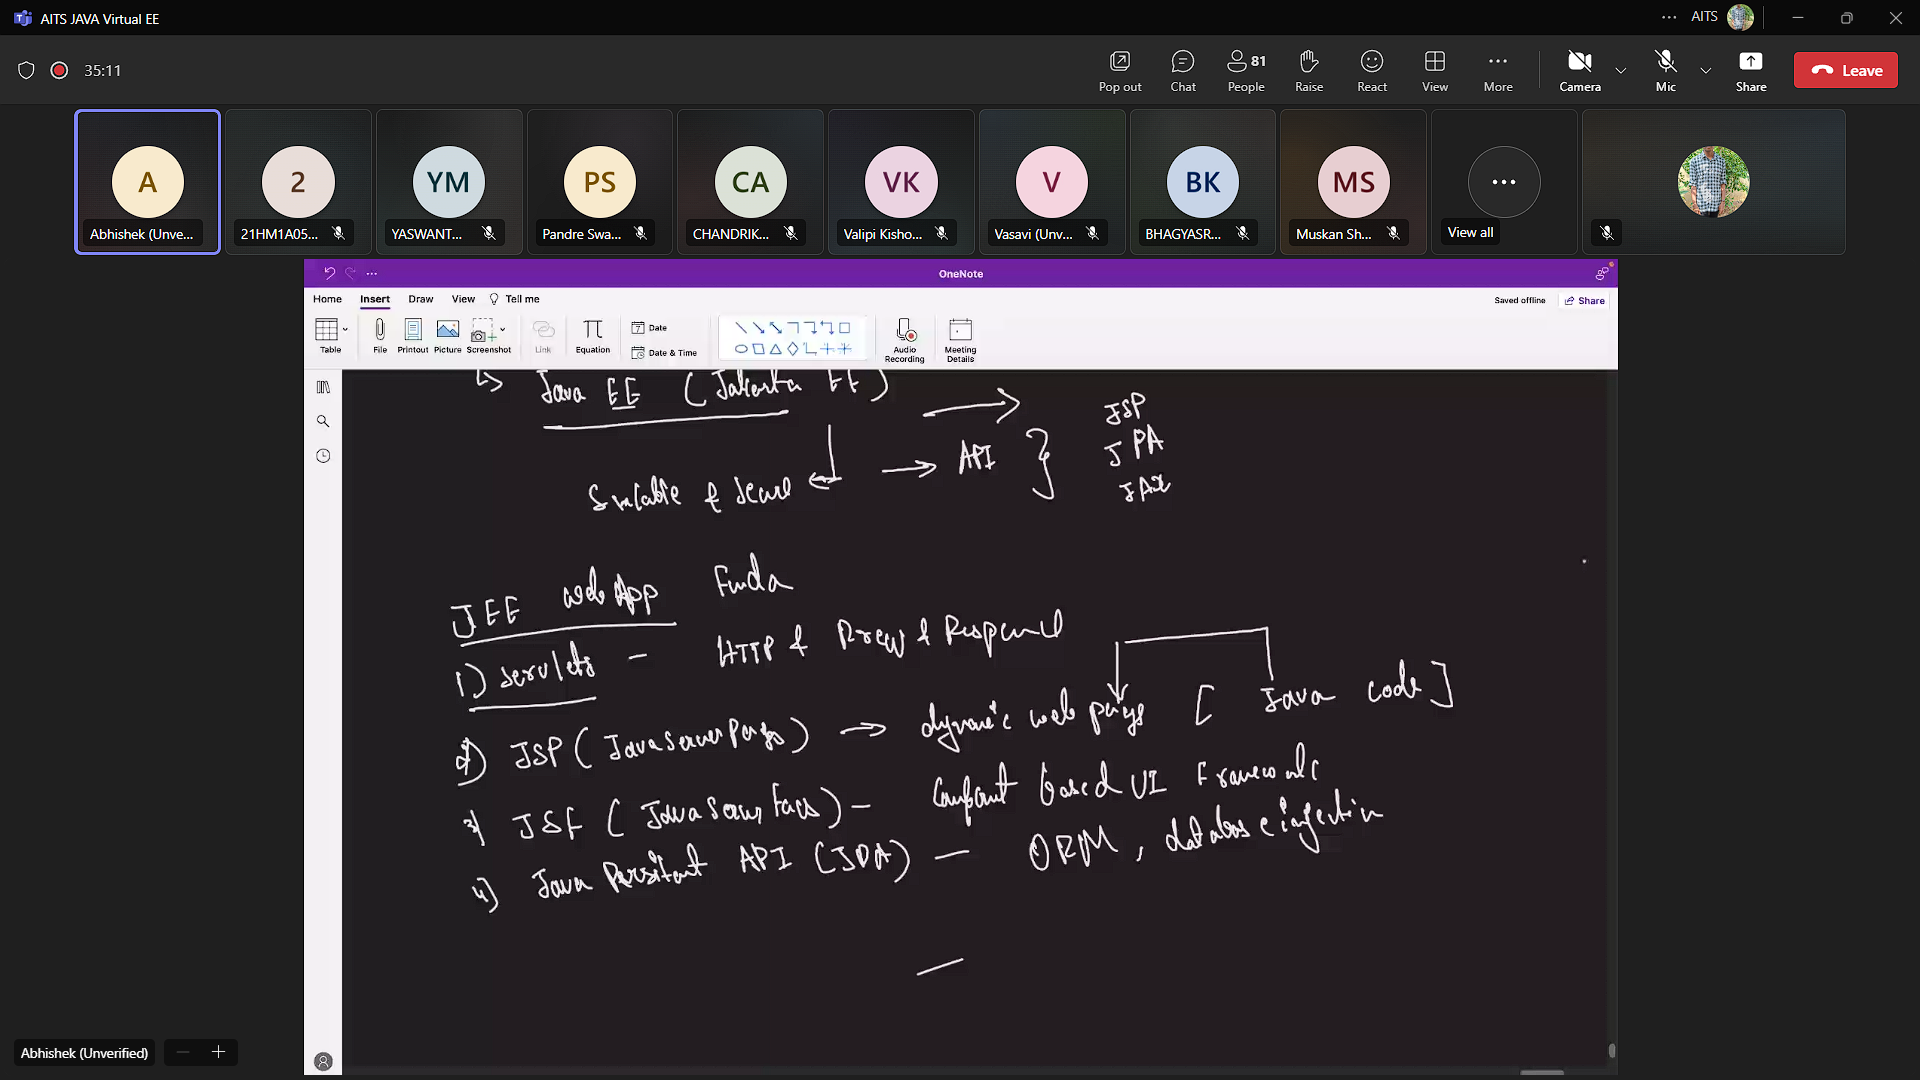 AITS JAVA Virtual EE
AITS
35:11
Pop out
Chat
81
People
Raise
React
View
More
Camera
Mic
Share
Leave
A
2
YM
PS
CA
VK
V
BK
MS
Abhishek (Unve...
21HM1A05...
YASWANT...
Pandre Swa...
CHANDRIK...
Valipi Kisho...
Vasavi (Unv...
BHAGYASR...
Muskan Sh...
View all
OneNote
Home Insert Draw View Tell me
Saved offline
Share
Table
File
Printout
Picture
Screenshot
Link
Equation
Date
Date & Time
Audio Recording
Meeting Details
Java EE (Jakarta EE)
JSP
API
JPA
JAX
JEE web App Funda
1) Servlets - HTTP &
2) JSP (JavaServerPages) → dynamic web pages [Java code]
3) JSF (Java Server Faces) - based UI Framework
4) Java Persistent API (JPA) - ORM, database
Abhishek (Unverified)